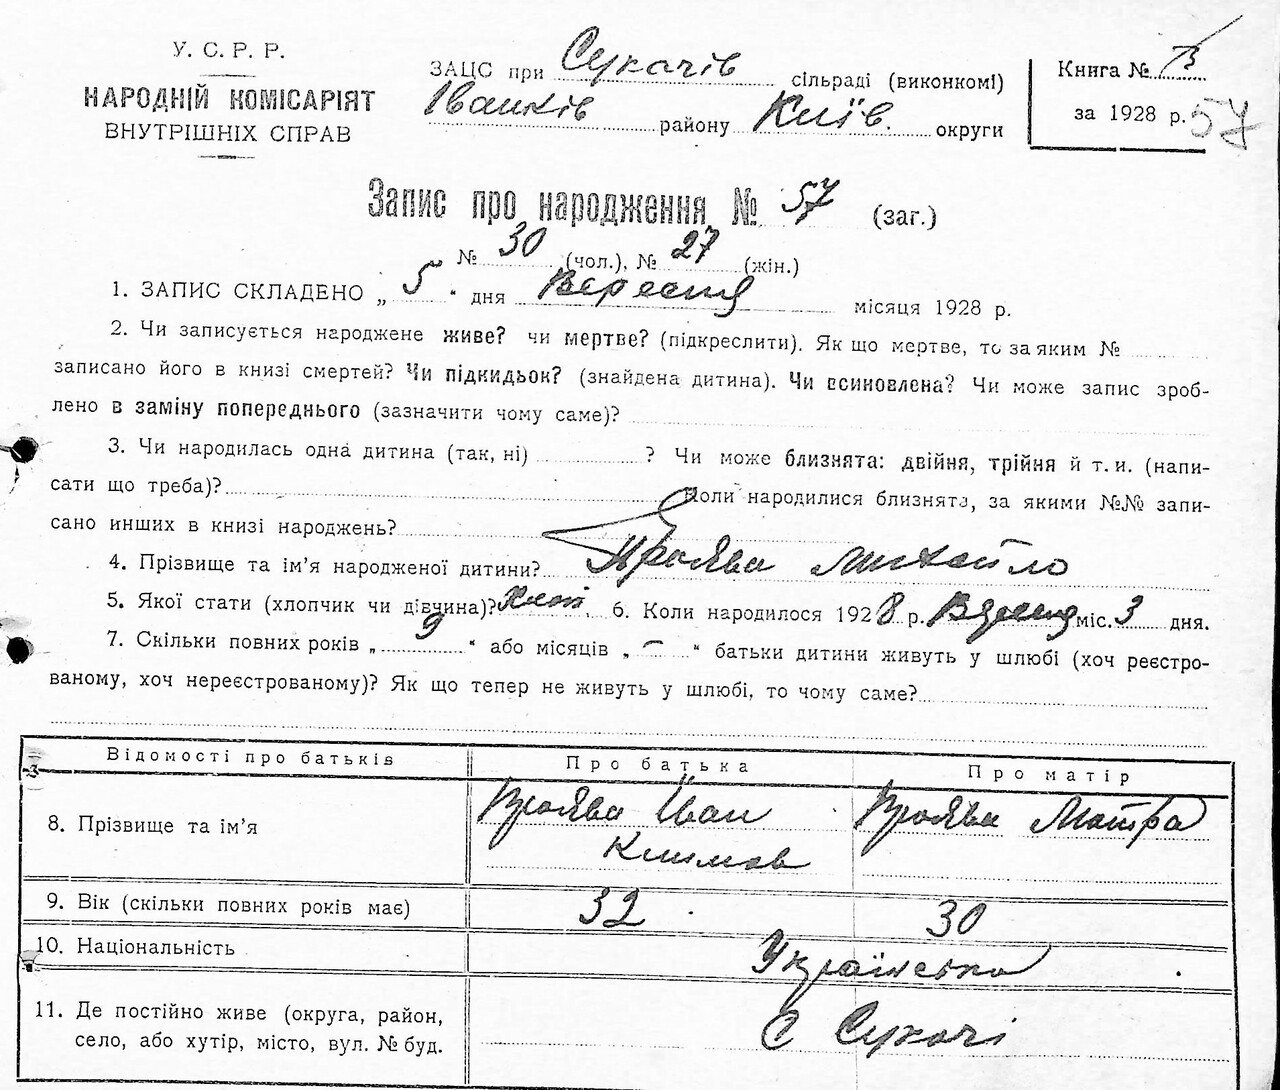 У. С. Р. Р.
НАРОДНІЙ КОМІСАРІЯТ
ВНУТРІШНІХ СПРАВ
ЗАЦС при Сукачів сільраді (виконкомі)
Іванків району Київ. округи
Книга №
за 1928 р. 57
Запис про народження № 57 (заг.)
№ 30 (чол.), № 27 (жін.)
1. ЗАПИС СКЛАДЕНО „ 5 “ дня Вересня місяця 1928 р.
2. Чи записується народжене живе? чи мертве? (підкреслити). Як що мертве, то за яким №
записано його в книзі смертей? Чи підкидьок? (знайдена дитина). Чи всиновлена? Чи може запис зроб-
лено в заміну попереднього (зазначити чому саме)?
3. Чи народилась одна дитина (так, ні) ? Чи може близнята: двійня, трійня й т. и. (напи-
сати що треба)? Коли народилися близнята, за якими №№ запи-
сано инших в книзі народжень?
4. Прізвище та ім’я народженої дитини? Проява Михайло
5. Якої стати (хлопчик чи дівчина)? 6. Коли народилося 1928 р. міс. 3 дня.
7. Скільки повних років „ 9 “ або місяців „ – “ батьки дитини живуть у шлюбі (хоч реєстро-
ваному, хоч нереєстрованому)? Як що тепер не живуть у шлюбі, то чому саме?
Відомості про батьків Про батька Про матір
8. Прізвище та ім’я Проява Іван Климов Проява Мотря
9. Вік (скільки повних років має) 32 30
10. Національність Українська
11. Де постійно живе (округа, район,
село, або хутір, місто, вул. № буд. С Сукачі